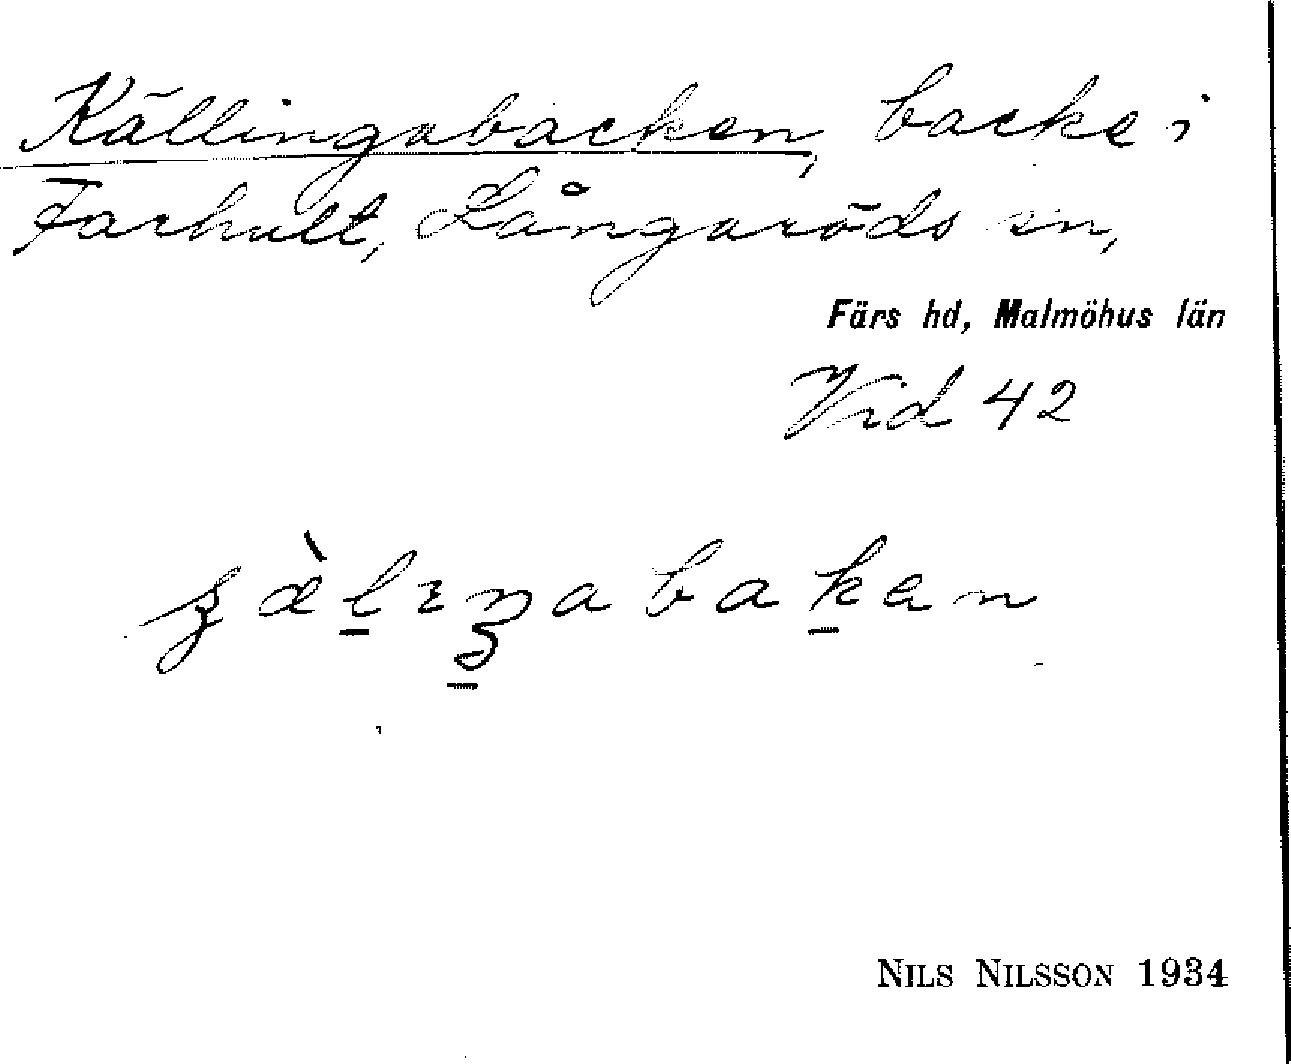 Källingabacken, backe i
Farhult, Långaröds sn,
Färs hd, Malmöhus län
Vid 42
NILS NILSSON 1934